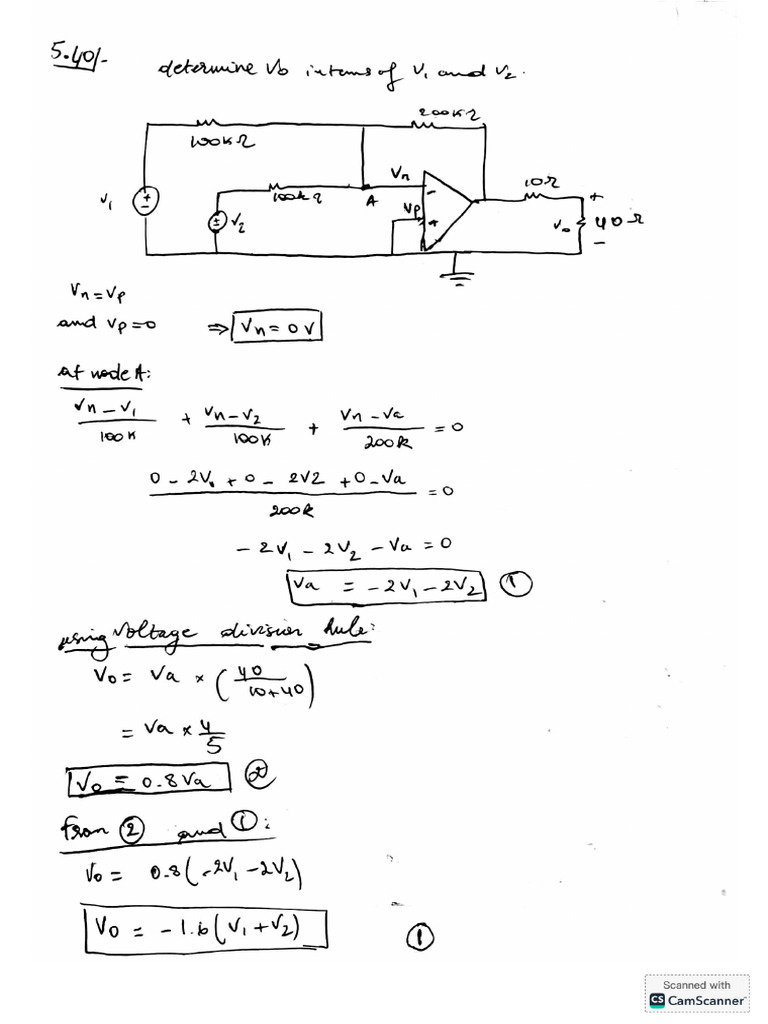 5.40/-
determine Vo interms of V1 and V2.
200KΩ
100KΩ
V1
+
-
100KΩ
A
Vn
Vp
-
+
±
V2
10Ω
+
Vo
40Ω
-
Vn = Vp
and Vp = 0 ⇒ Vn = 0V
at node A:
(Vn - V1)/100K + (Vn - V2)/100K + (Vn - Va)/200K = 0
(0 - 2V1 + 0 - 2V2 + 0 - Va)/200K = 0
- 2V1 - 2V2 - Va = 0
Va = -2V1 - 2V2 ①
using Voltage division Rule:
Vo = Va × (40/(10+40))
= Va × 4/5
Vo = 0.8Va ②
from ② and ①:
Vo = 0.8(-2V1 - 2V2)
Vo = -1.6(V1 + V2) ①
Scanned with
CS CamScanner